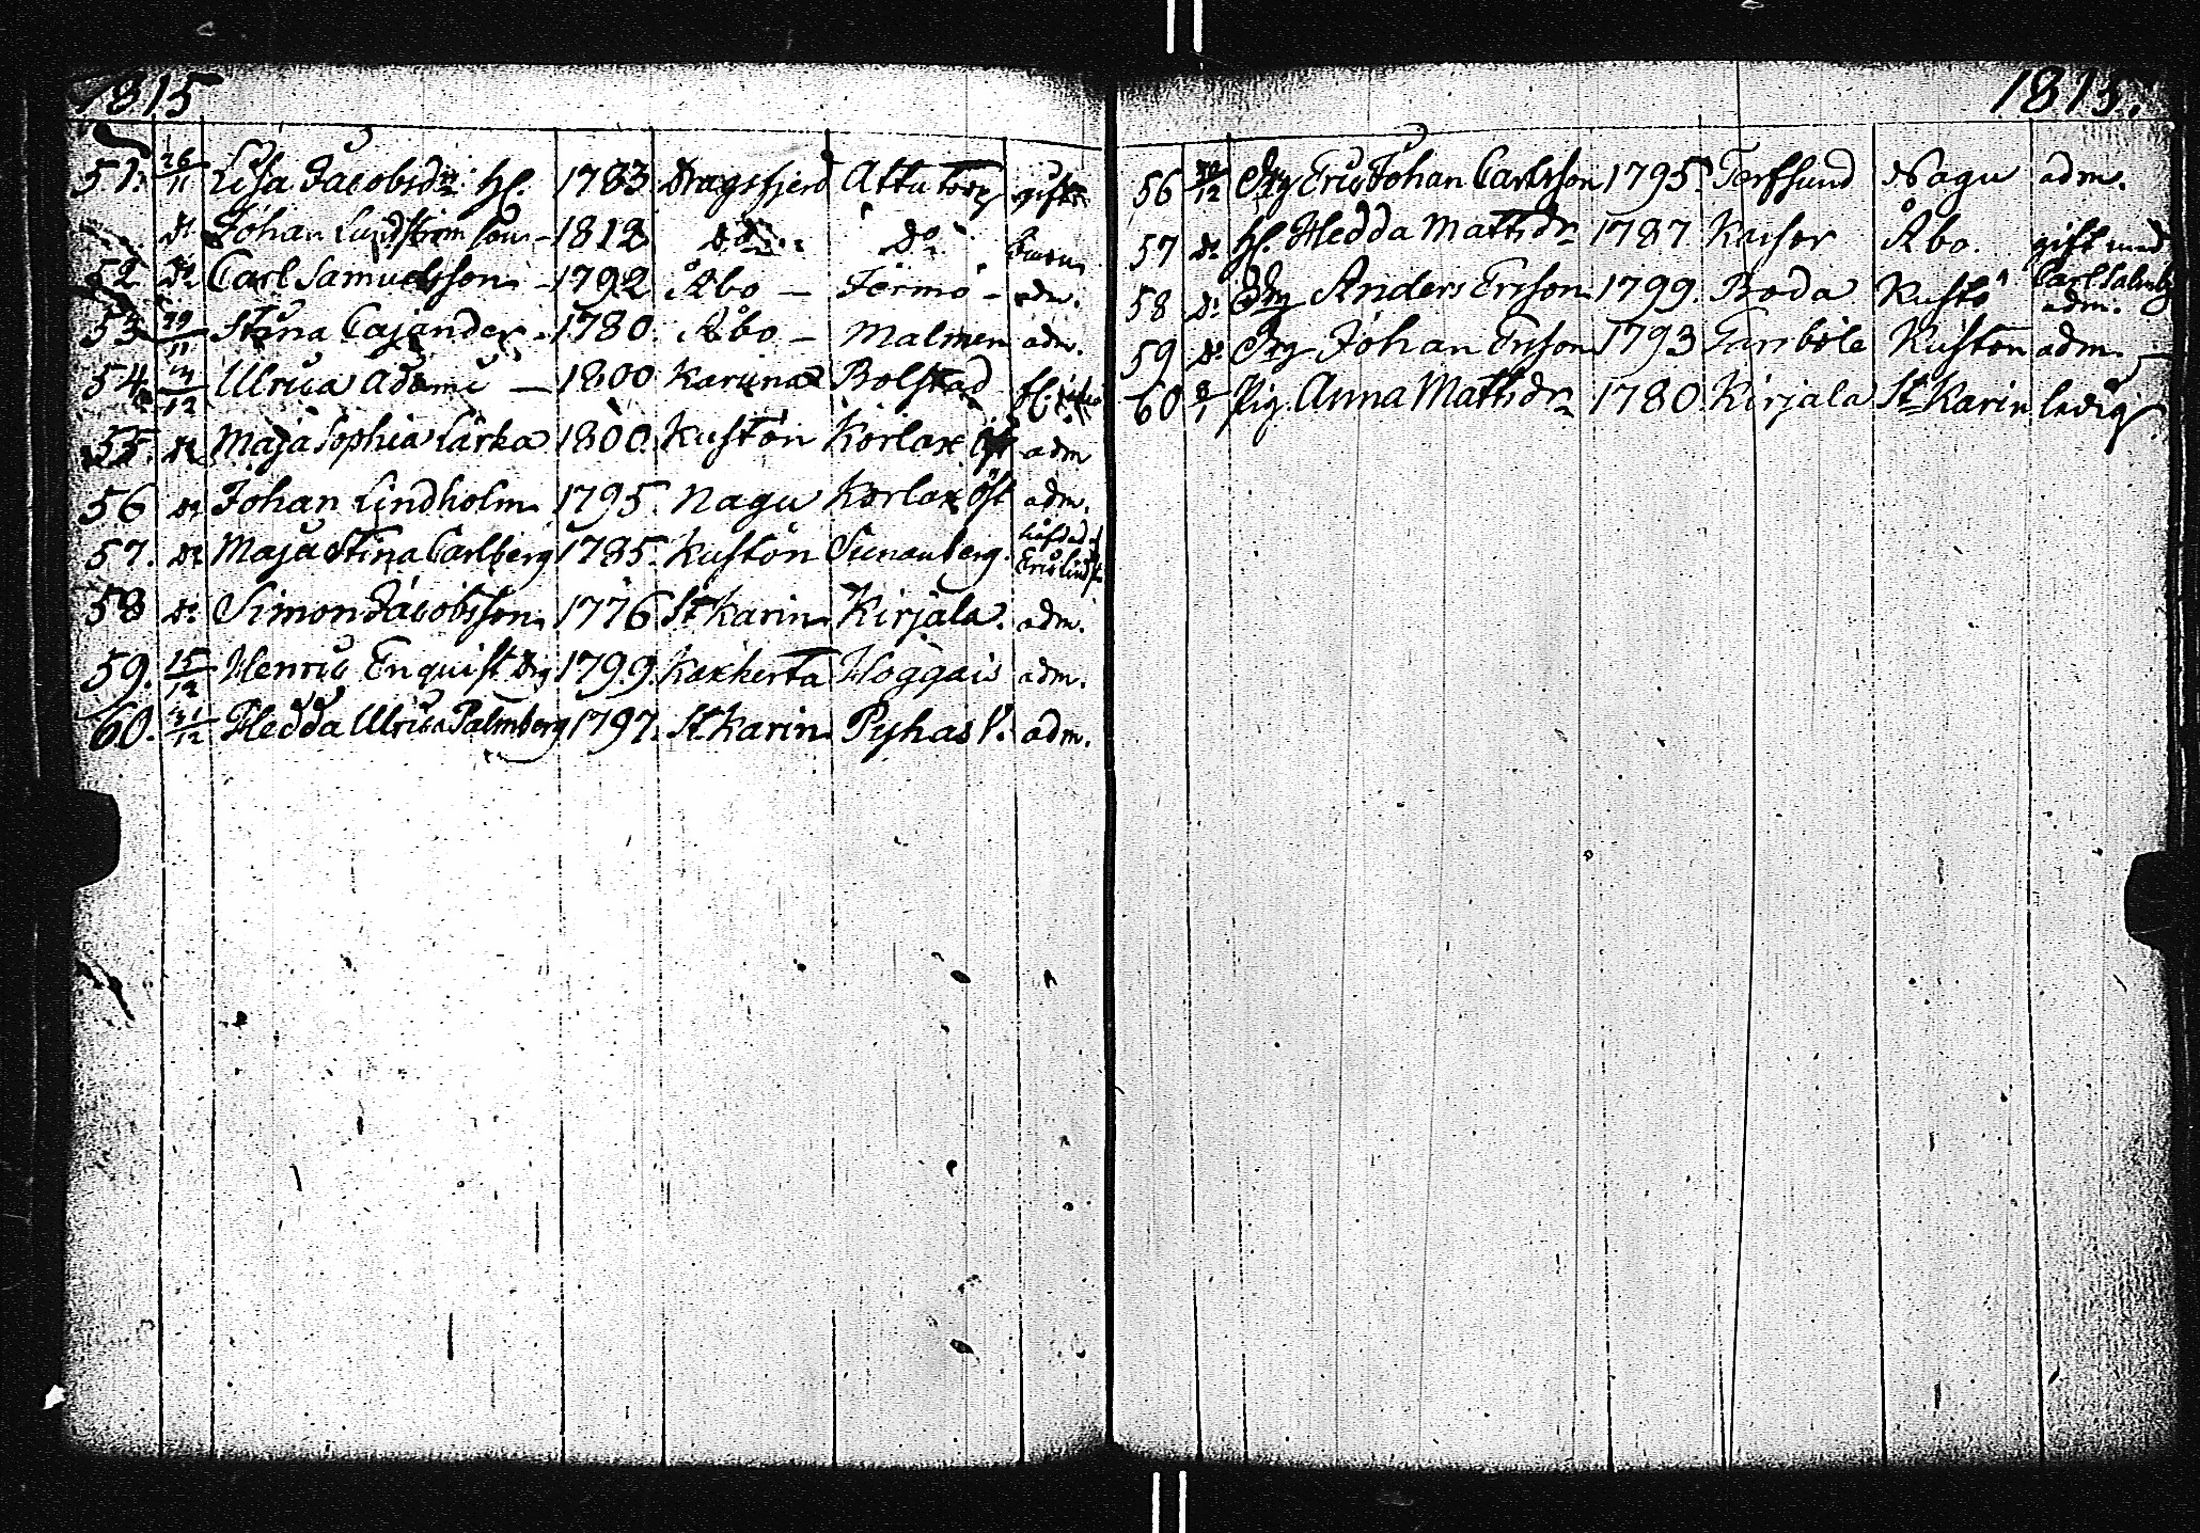 1815
51. 26/11 Lisa Jacobsdr Hl. 1783 Dragsfjerd Attu torp gift
do Johan Lundström son - 1812 do do barn
52 do Carl Samuelsson - 1792 Åbo - Järmö - adm.
53 29/11 Stina Cajander - 1780. Åbo - Malmen adm.
54 14/12 Ulrica Adami - 1800 Karuna Bolstad
55. do Maja Sophia Lärka 1800. Kustön Korlax öst adm
56 do Johan Lindholm 1795. Nagu Korlax öst adm.
57. do Maja Stina Carlberg 1785. Kustön Sunnanberg. häfdad af Eric Lindst.
58 do Simon Jacobsson 1776 St Karin Kirjala. adm.
59. 15/12 Henric Enquist drg 1799. Kakkerta Hoggais adm.
60. 31/12 Hedda Ulrica Palmberg 1797. St. Karin Pyhas V. adm.
1815.
56 30/12 Drg Eric Johan Carlsson 1795. Terfsund Nagu adm.
57 do Hl. Hedda Mattsdr 1787 Kusor Åbo. gift med Carl Salmbg
58 do Drg Anders Ersson 1799. Boda Kustö adm.
59 do Drg Johan Ersson 1793 Garsböle Kustön adm.
60 8/1 Pig. Anna Mattsdr 1780. Kirjala St. Karin ledig